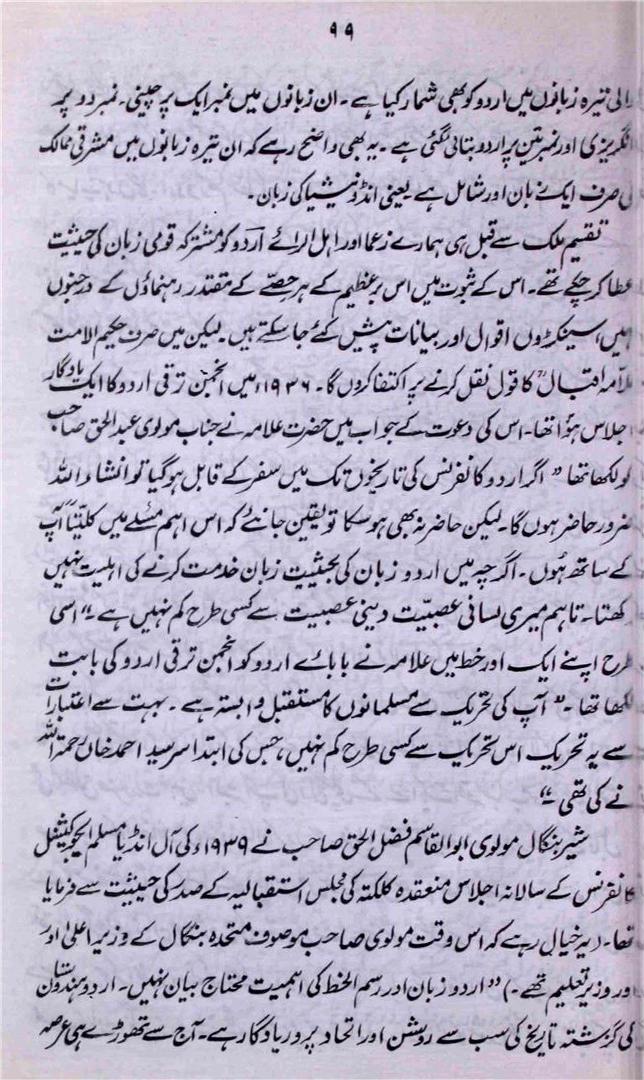 ۹۹
تیرہ زبانوں میں اردو کو بھی شمار کیا ہے۔ ان زبانوں میں نمبر ایک پر چینی۔ نمبر دو پر
نگریزی اور نمبر تین پر اردو بتائی گئی ہے۔ یہ بھی واضح رہے کہ ان تیرہ زبانوں میں مشرقی ممالک
کی صرف ایک زبان اور شامل ہے یعنی انڈونیشیا کی زبان۔
تقسیم ملک سے قبل ہی ہمارے زعما اور اہل الرائے اردو کو مشترکہ قومی زبان کی حیثیت
عطا کر چکے تھے۔ اس کے ثبوت میں اس برعظیم کے ہر حصے کے مقتدر رہنماؤں کے درجنوں
نہیں، سینکڑوں اقوال اور بیانات پیش کئے جا سکتے ہیں۔ لیکن میں صرف حکیم الامت
علامہ اقبالؒ کا قول نقل کرنے پر اکتفا کروں گا۔ ۱۹۳۶ء میں انجمن ترقی اردو کا ایک یادگار
اجلاس ہوا تھا۔ اس کی دعوت کے جواب میں حضرت علامہ نے جناب مولوی عبدالحق صاحب
کو لکھا تھا " اگر اردو کانفرنس کی تاریخوں تک میں سفر کے قابل ہو گیا تو انشاء اللہ
ضرور حاضر ہوں گا۔ لیکن حاضر نہ بھی ہو سکا تو یقین جانئے کہ اس اہم مسئلے میں کلیتاً آپ
کے ساتھ ہوں۔ اگرچہ میں اردو زبان کی بحیثیت زبان خدمت کرنے کی اہلیت نہیں
رکھتا۔ تاہم میری لسانی عصبیت دینی عصبیت سے کسی طرح کم نہیں ہے۔" اسی
طرح اپنے ایک اور خط میں علامہ نے بابائے اردو کو انجمن ترقی اردو کی بابت
لکھا تھا۔ " آپ کی تحریک سے مسلمانوں کا مستقبل وابستہ ہے۔ بہت سے اعتبارات
سے یہ تحریک اس تحریک سے کسی طرح کم نہیں، جس کی ابتدا سر سید احمد خاں رحمۃ اللہ
نے کی تھی۔"
شیر بنگال مولوی ابوالقاسم فضل الحق صاحب نے ۱۹۳۹ء کی آل انڈیا مسلم ایجوکیشنل
کانفرنس کے سالانہ اجلاس منعقدہ کلکتہ کی مجلس استقبالیہ کے صدر کی حیثیت سے فرمایا
تھا۔ (یہ خیال رہے کہ اس وقت مولوی صاحب موصوف متحدہ بنگال کے وزیر اعلیٰ اور
اور وزیر تعلیم تھے۔) "اردو زبان اور رسم الخط کی اہمیت محتاج بیان نہیں۔ اردو ہندوستان
کی گزشتہ تاریخ کی سب سے روشن اور اتحاد پرور یادگار ہے۔ آج سے تھوڑے ہی عرصہ